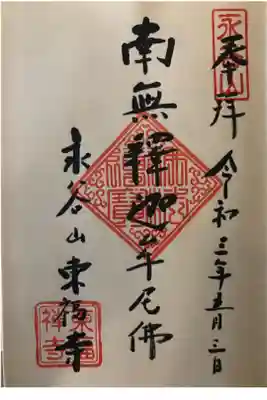 奉拝 令和三年五月三日
南無釋迦牟尼佛
永谷山 東福寺
永谷山